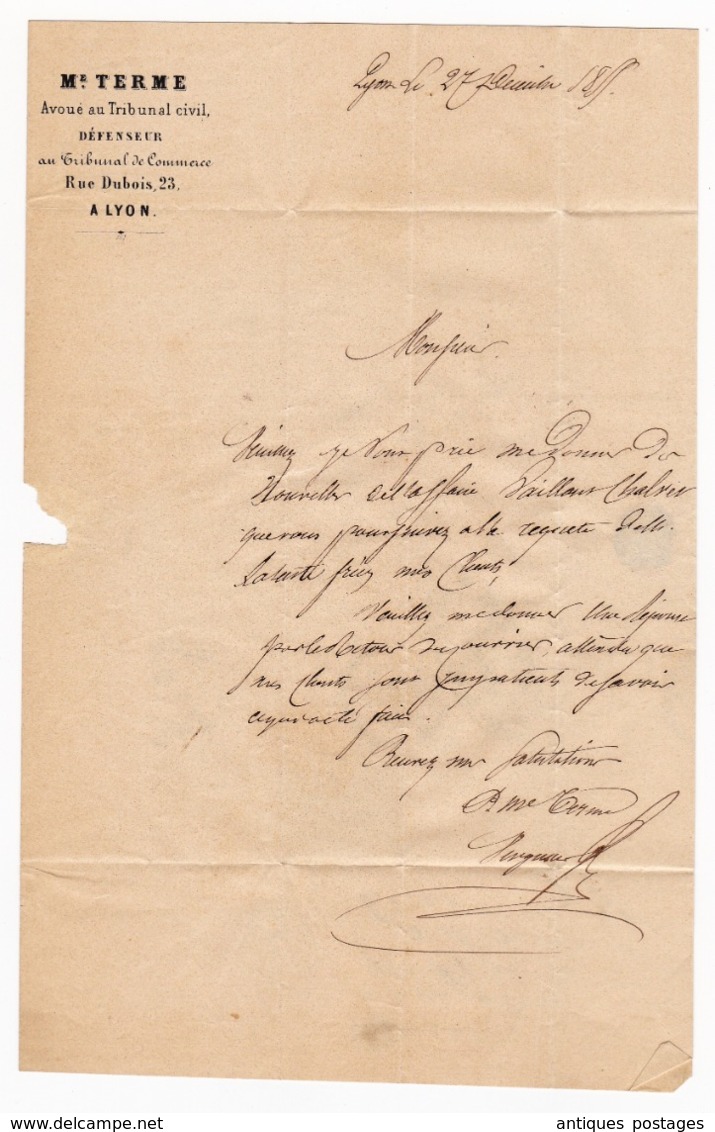 Mᴿ TERME
Avoué au Tribunal civil,
DÉFENSEUR
au Tribunal de Commerce
Rue Dubois, 23,
A LYON.
Lyon Le 27 Décembre
Monsieur
Veuillez je vous prie me donner des
Nouvelles de l'affaire Vaillant
que vous poursuivez a la requete de M.
frères mes Clients,
Veuillez me donner Une Réponse
par le Retour du courrier, attendu que
mes Clients sont impatients de savoir
ce qui a été fait.
Recevez mes salutations
Me Terme
antiques postages